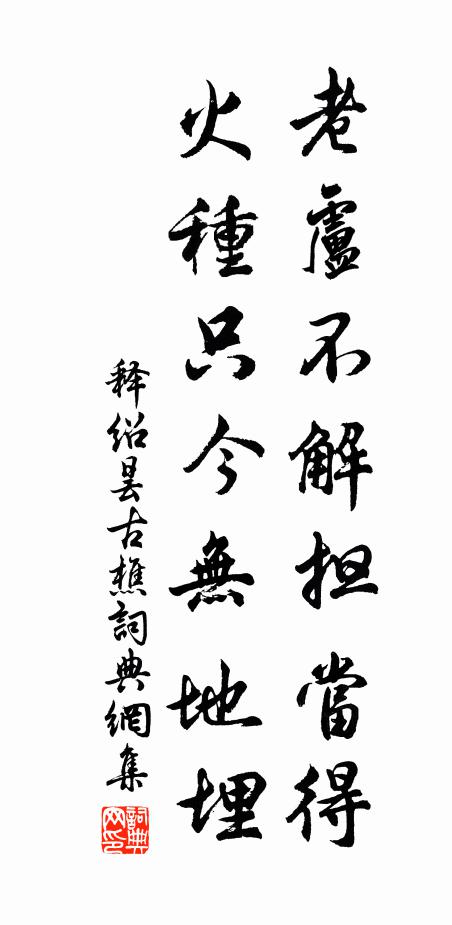 老盧不解担當得
火種只今無地埋
释绍昙古樵詞典網集
詞典网印